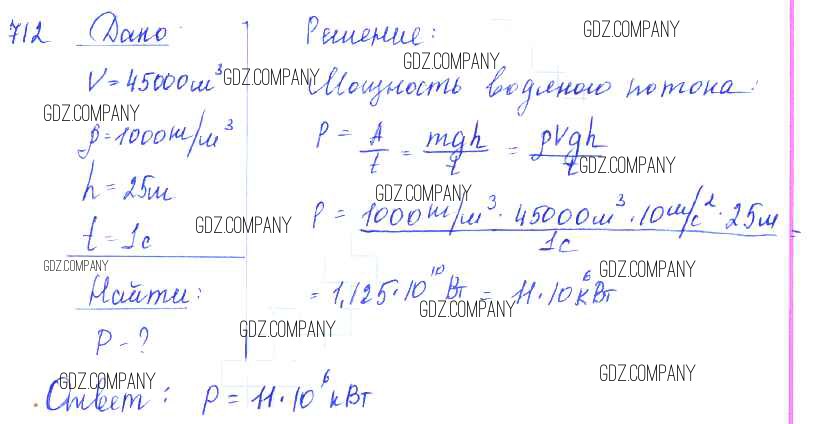 712 Дано
V = 45000 м³
ρ = 1000 кг/м³
h = 25 м
t = 1 с
Найти:
P - ?
Решение:
Мощность водяного потока:
P = A/t = mgh/t = ρVgh/t
P = 1000 кг/м³ · 45000 м³ · 10 м/с² · 25 м / 1 с =
= 1,125 · 10¹⁰ Вт = 11 · 10⁶ кВт
Ответ: P = 11 · 10⁶ кВт
GDZ.COMPANY
GDZ.COMPANY
GDZ.COMPANY
GDZ.COMPANY
GDZ.COMPANY
GDZ.COMPANY
GDZ.COMPANY
GDZ.COMPANY
GDZ.COMPANY
GDZ.COMPANY
GDZ.COMPANY
GDZ.COMPANY
GDZ.COMPANY